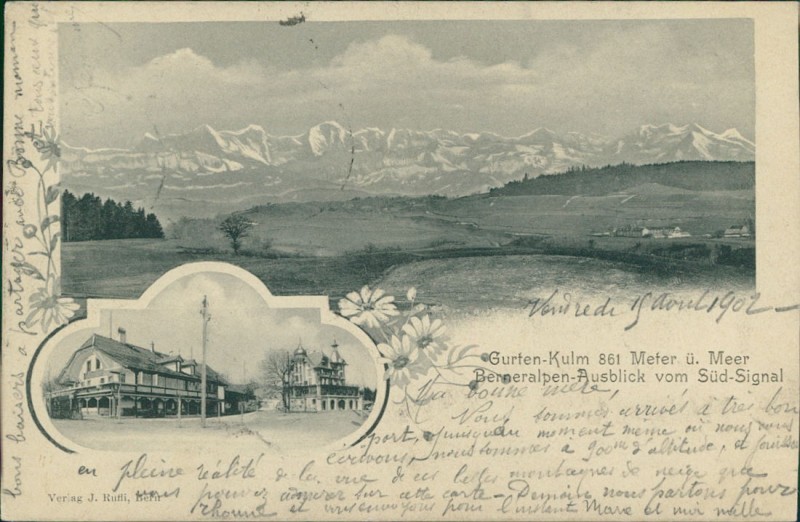 Vendredi 15 Août 1902
Gurten-Kulm 861 Meter ü. Meer
Berneralpen-Ausblick vom Süd-Signal
Ma bonne mère,
Nous sommes arrivés à très bon
port, jusqu'au moment même où nous vous
écrivons, nous sommes à 900m d'altitude, et
en pleine réalité de la vue de ces belles montagnes de neige que
vous pouvez admirer sur cette carte - Demain nous partons pour
et vous envoyons pour l'instant Marc et moi mille
bons baisers à partager avec Bonne maman
et tous ceux
Verlag J. Ruffi, Bern